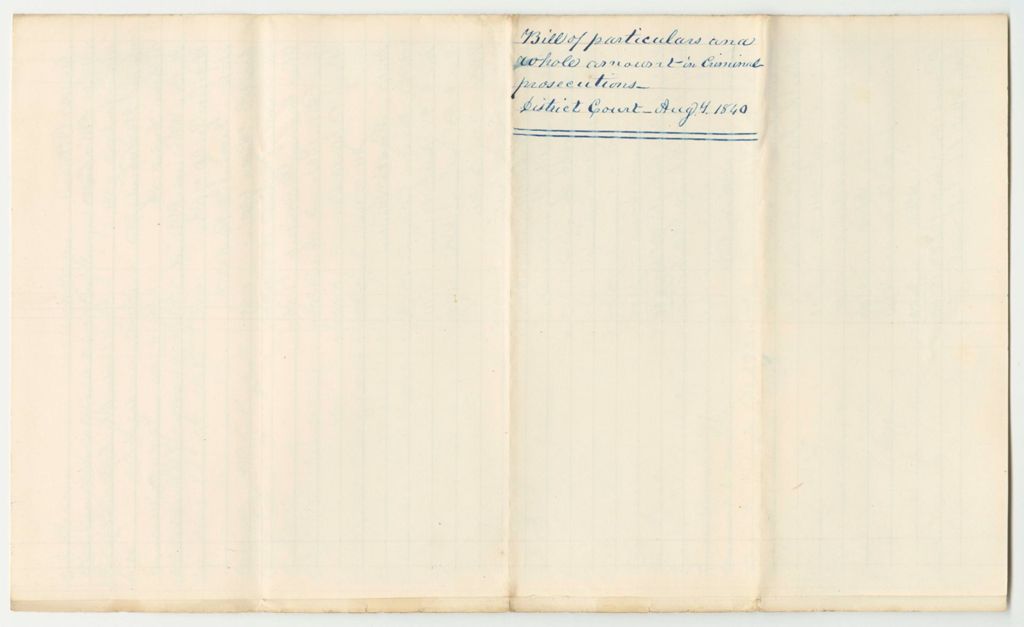 Bill of particulars and
whole amount in Criminal
prosecutions—
District Court—Aug. T. 1840